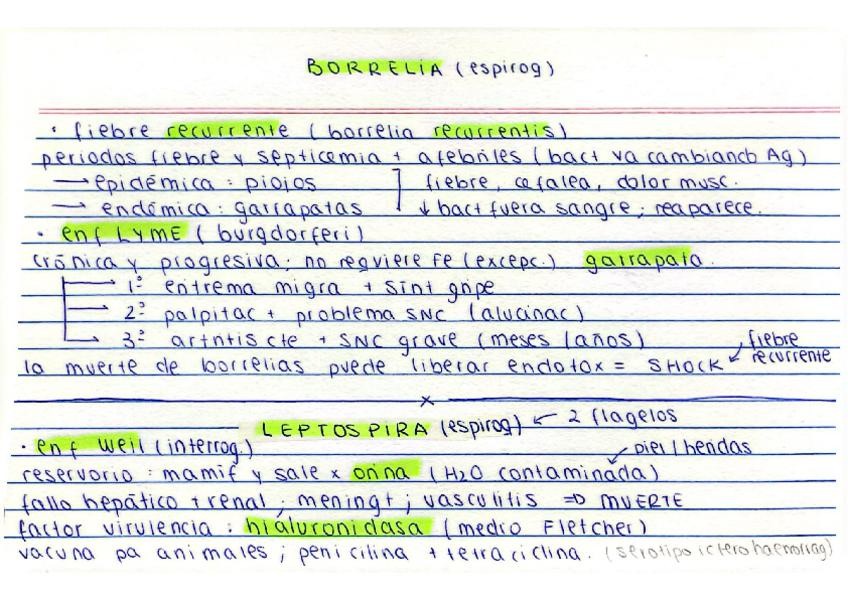 BORRELIA (espirog)
· fiebre recurrente (borrelia recurrentis)
periodos fiebre y septicemia + afebriles (bact va cambiando Ag)
→ epidémica : piojos ] fiebre, cefalea, dolor musc.
→ endémica : garrapatas ↓ bact fuera sangre ; reaparece.
· enf LYME (burgdorferi)
crónica y progresiva; no requiere Fe (excepc.) garrapata.
→ 1º entrema migra + sint gripe
→ 2º palpitac + problema SNC (alucinac)
→ 3º artritis cte + SNC grave (meses/años)
la muerte de borrelias puede liberar endotox = SHOCK ↙ fiebre recurrente
x
LEPTOSPIRA (espirog) ← 2 flagelos
· enf Weil (interrog.)
piel/hendas
reservorio : mamif y sale x orina (H2O contaminada)
fallo hepático + renal ; meningt ; vasculitis ⇒ MUERTE
factor virulencia : hialuronidasa (medio Fletcher)
vacuna pa animales ; penicilina + tetraciclina. (serotipo icterohaemorrag)